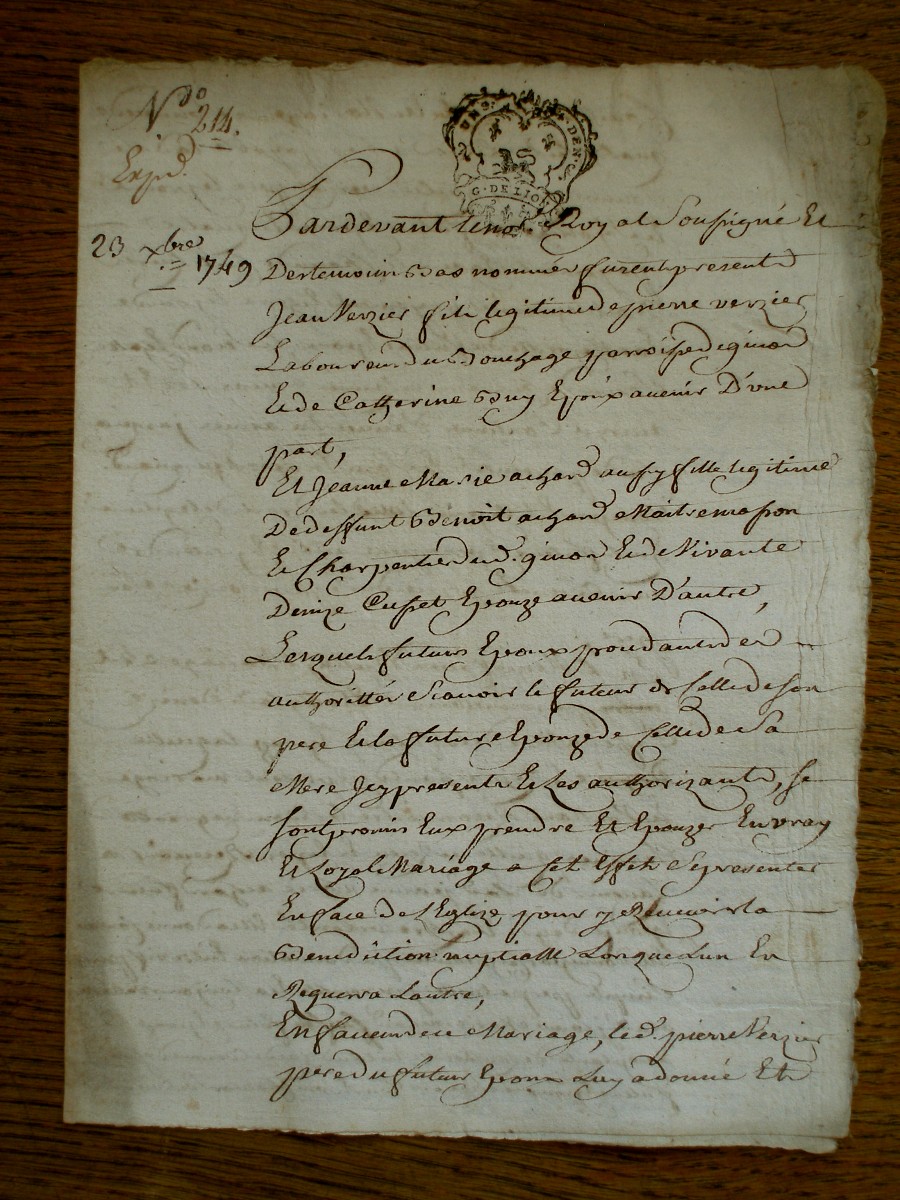 N.do 214.
Exped.
23 xbre 1749
UN S. 4. DEN.
G. DE LION
Pardevant le not.re Royal Soussigné Et
Des temoins Bas nommés furent presents
Jean Verzier fils legitime de pierre verzier
Laboureur du Bouchage parroisse de
Et de Catherine Buy Epoux avenir D'une
part,
Et Jeanne Marie achard aussy fille legitime
De deffunt Benoit achard Maitre masson
Et Charpentier dud. Et de Vivante
Denize Cusset Epouze avenir D'autre,
Lesquels futurs Epoux procedants des
authorittés Scavoir le futur de Celle de Son
pere Et la future Epouze de Celle de Sa
Mere Icy presents Et Les authorizants, se
sont promis Eux prendre Et Epouzer En vray
Et Loyal Mariage a Cet Effet Se presenter
En face de l'Eglize pour y Recevoir la
Benediction nuptialle Lorque Lun En
Requerra Lautre,
En faveur de ce Mariage, led. pierre Verzier
pere du futur Epoux Luy a donné Et